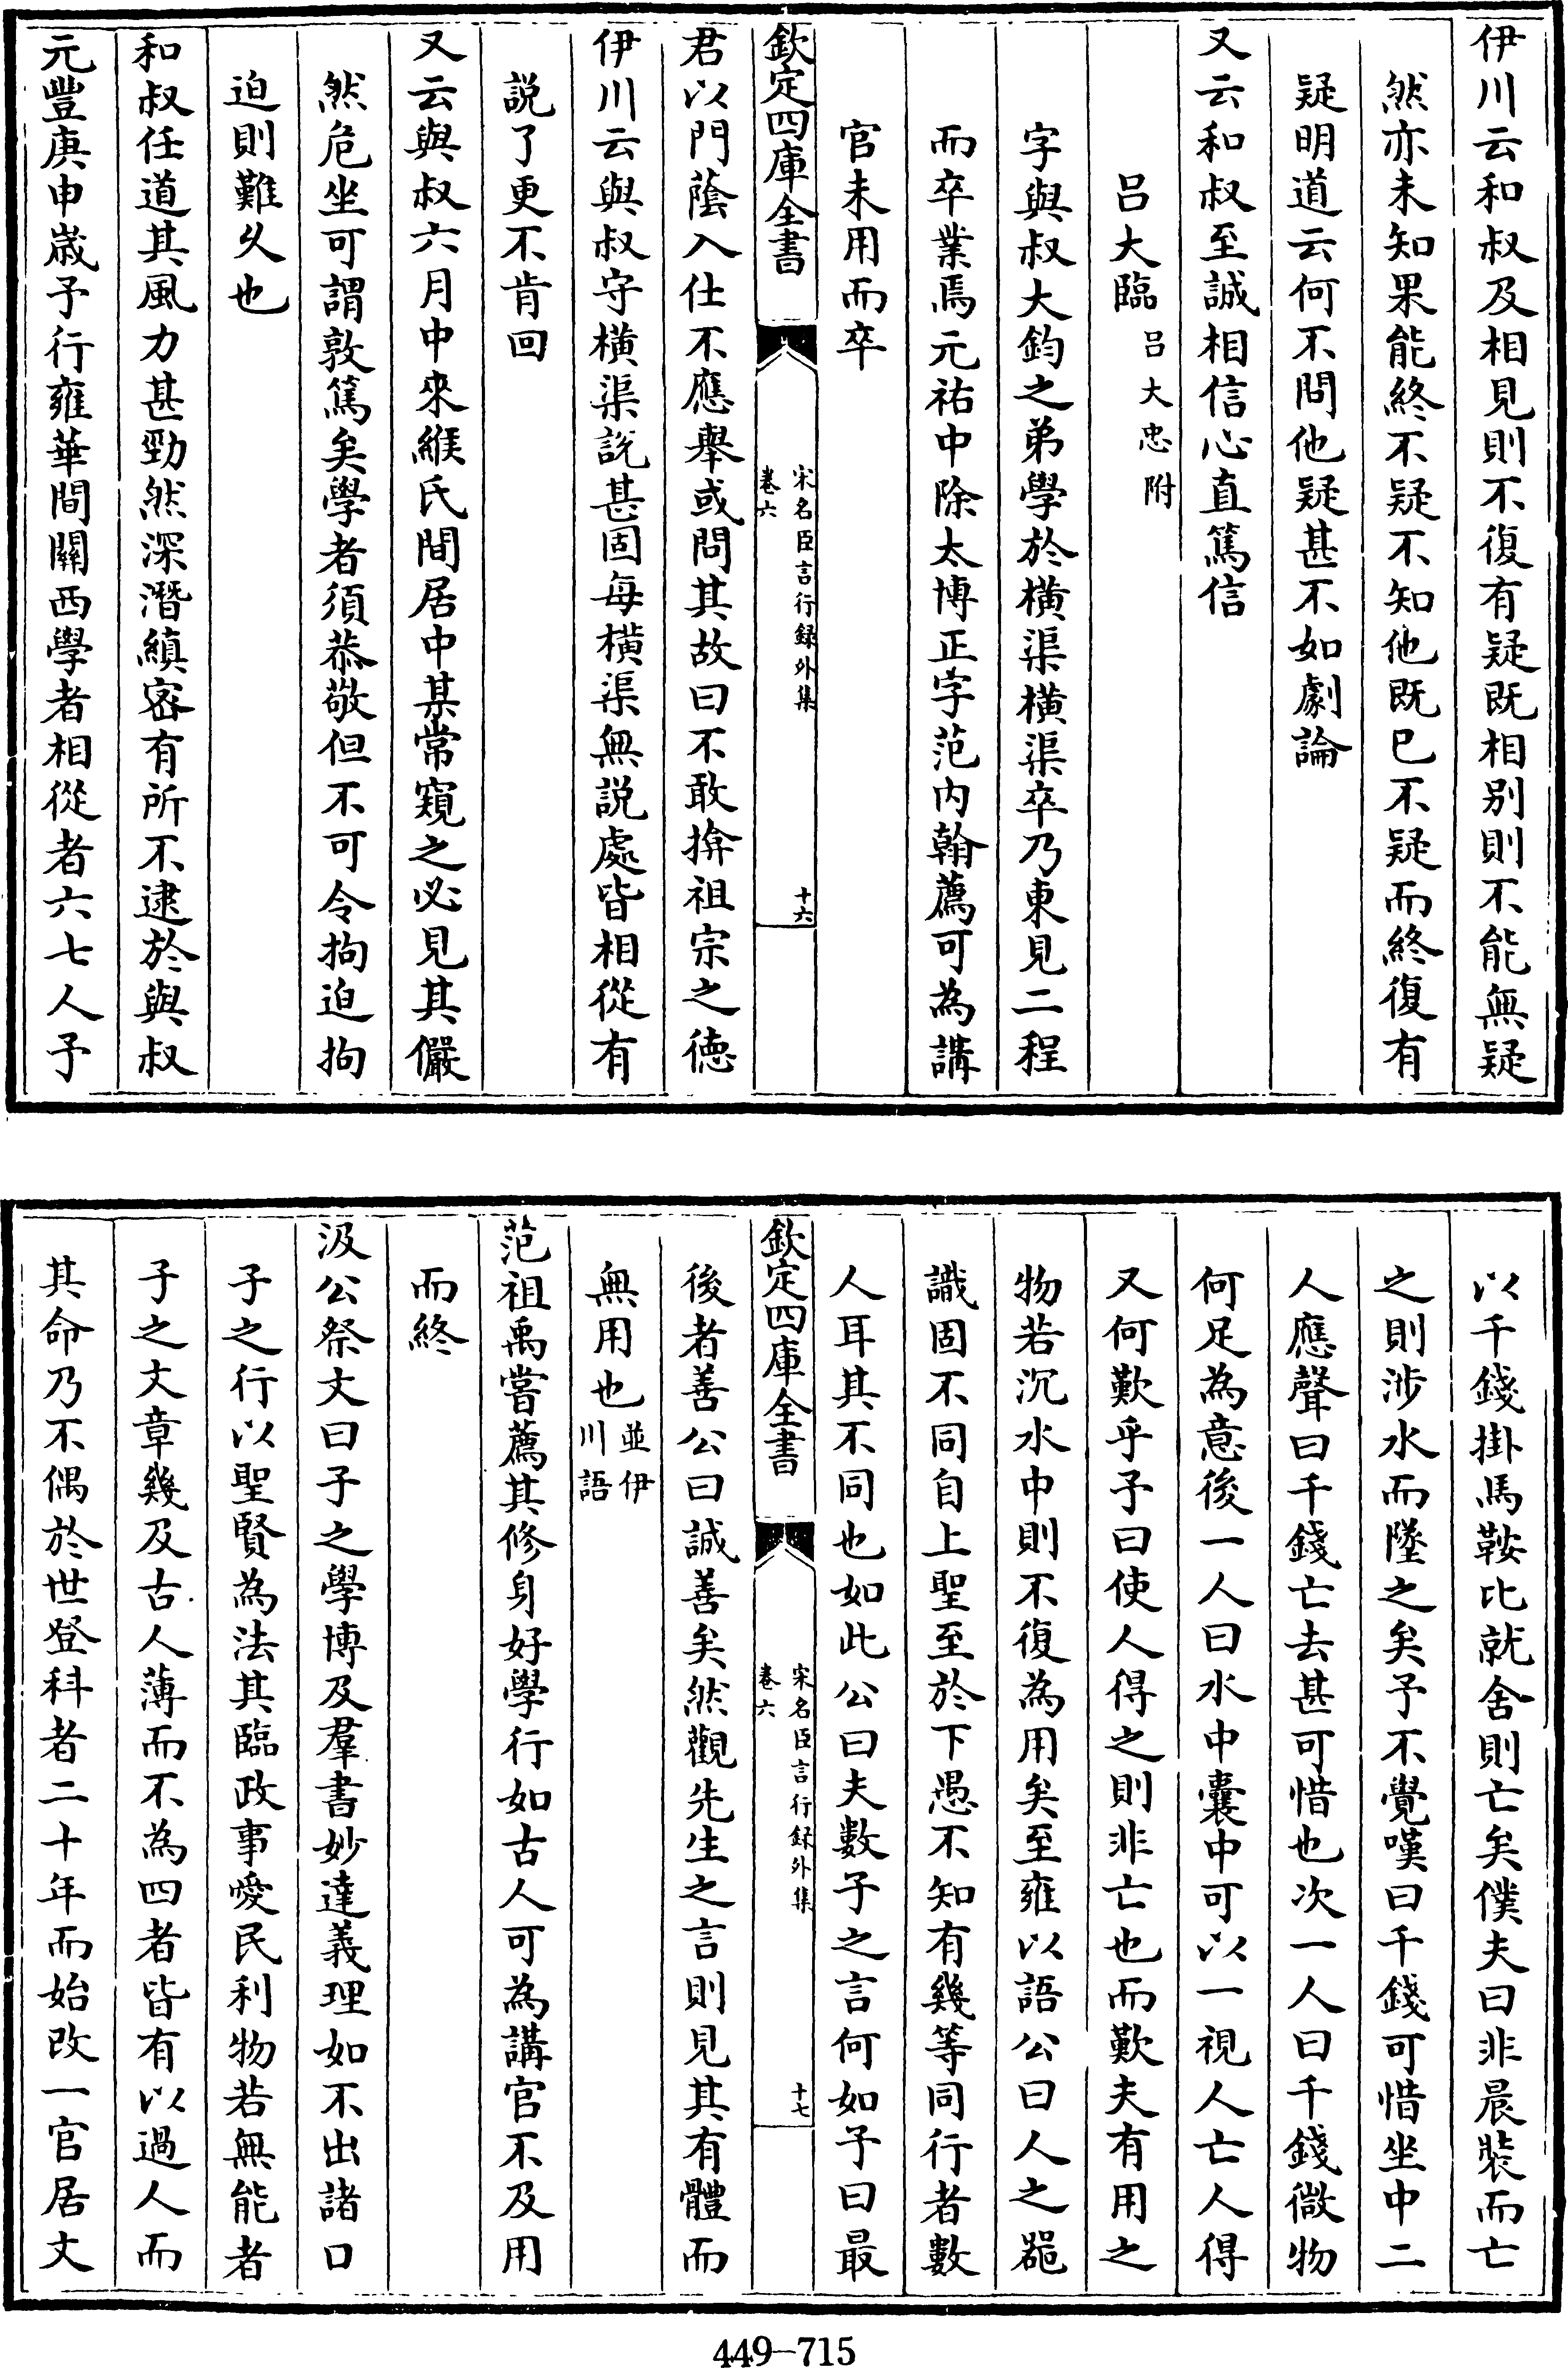 伊川云和叔及相見則不復有疑既相别則不能無疑
然亦未知果能終不疑不知他既已不疑而終復有
疑明道云何不問他疑甚不如劇論
又云和叔至誠相信心直篤信
吕大臨吕大忠附
字與叔大鈞之弟學於横渠横渠卒乃東見二程
而卒業焉元祐中除太博正字范内翰薦可為講
官未用而卒
欽定四庫全書
宋名臣言行録外集
卷六
十六
君以門蔭入仕不應舉或問其故曰不敢揜祖宗之徳
伊川云與叔守横渠説甚固每横渠無説處皆相從有
説了更不肯回
又云與叔六月中來緱氏間居中某常窺之必見其儼
然危坐可謂敦篤矣學者須恭敬但不可令拘迫拘
迫則難久也
和叔任道其風力甚勁然深潛縝宻有所不逮於與叔
元豐庚申嵗予行雍華間關西學者相從者六七人予
以千錢掛馬鞍比就舍則亡矣僕夫曰非晨裝而亡
之則涉水而墜之矣予不覺嘆曰千錢可惜坐中二
人應聲曰千錢亡去甚可惜也次一人曰千錢微物
何足為意後一人曰水中囊中可以一視人亡人得
又何歎乎予曰使人得之則非亡也而歎夫有用之
物若沉水中則不復為用矣至雍以語公曰人之噐
識固不同自上聖至於下愚不知有幾等同行者數
人耳其不同也如此公曰夫數子之言何如予曰最
欽定四庫全書
宋名臣言行録外集
卷六
十七
後者善公曰誠善矣然觀先生之言則見其有體而
無用也並伊川語
范祖禹嘗薦其修身好學行如古人可為講官不及用
而終
汲公祭文曰子之學博及羣書妙達義理如不出諸口
子之行以聖賢為法其臨政事愛民利物若無能者
子之文章幾及古人薄而不為四者皆有以過人而
其命乃不偶於世登科者二十年而始改一官居文
449-715